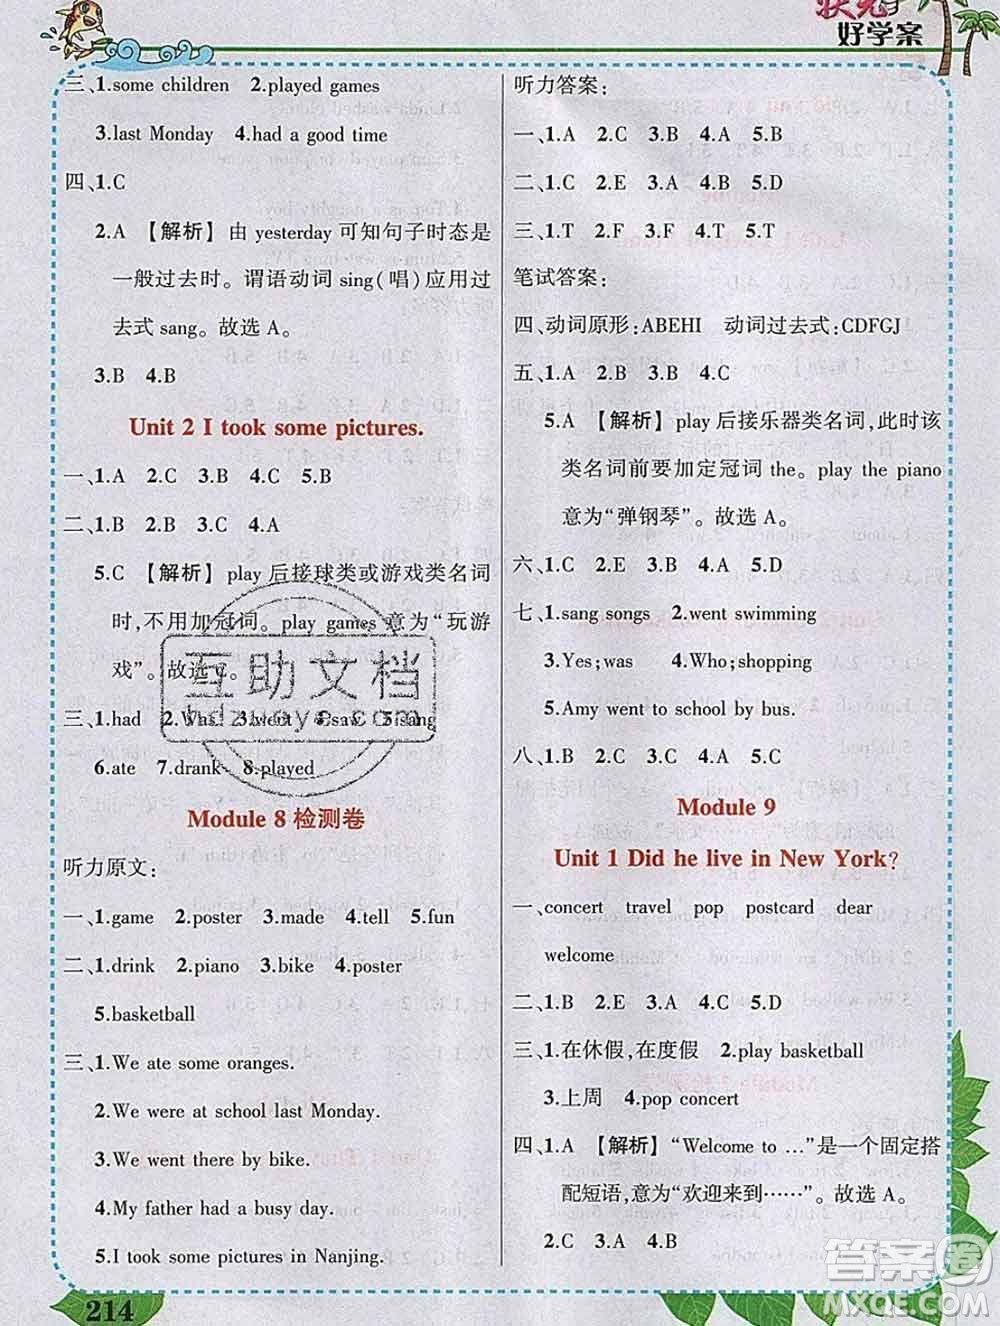 状元
好学案
三、1.some children 2.played games
3.last Monday 4.had a good time
四、1.C
2.A 【解析】由 yesterday 可知句子时态是
一般过去时。谓语动词 sing(唱)应用过
去式 sang。故选 A。
3.B 4.B
Unit 2 I took some pictures.
一、1.A 2.C 3.B 4.A 5.B
二、1.B 2.B 3.C 4.A
5.C 【解析】play 后接球类或游戏类名词
时,不用加冠词。play games 意为“玩游
戏”。故选 C。
三、1.had 2.Was 3.went 4.saw 5.sang
6.ate 7.drank 8.played
Module 8 检测卷
听力原文:
一、1.game 2.poster 3.made 4.tell 5.fun
二、1.drink 2.piano 3.bike 4.poster
5.basketball
三、1.We ate some oranges.
2.We were at school last Monday.
3.We went there by bike.
4.My father had a busy day.
5.I took some pictures in Nanjing.
214
听力答案:
一、1.A 2.C 3.B 4.A 5.B
二、1.C 2.E 3.A 4.B 5.D
三、1.T 2.F 3.F 4.T 5.T
笔试答案:
四、动词原形:ABEHI 动词过去式:CDFGJ
五、1.A 2.B 3.B 4.C
5.A 【解析】play 后接乐器类名词,此时该
类名词前要加定冠词 the。play the piano
意为“弹钢琴”。故选 A。
六、1.C 2.E 3.A 4.B 5.D
七、1.sang songs 2.went swimming
3.Yes;was 4.Who;shopping
5.Amy went to school by bus.
八、1.B 2.C 3.B 4.A 5.C
Module 9
Unit 1 Did he live in New York?
一、concert travel pop postcard dear
welcome
二、1.B 2.E 3.A 4.C 5.D
三、1.在休假,在度假 2.play basketball
3.上周 4.pop concert
四、1.A 【解析】“Welcome to …”是一个固定搭
配短语,意为“欢迎来到……”。故选 A。
2.C 3.A 4.B 5.D
互助文档
hdzuoye.com
答案圈
MXQE.COM